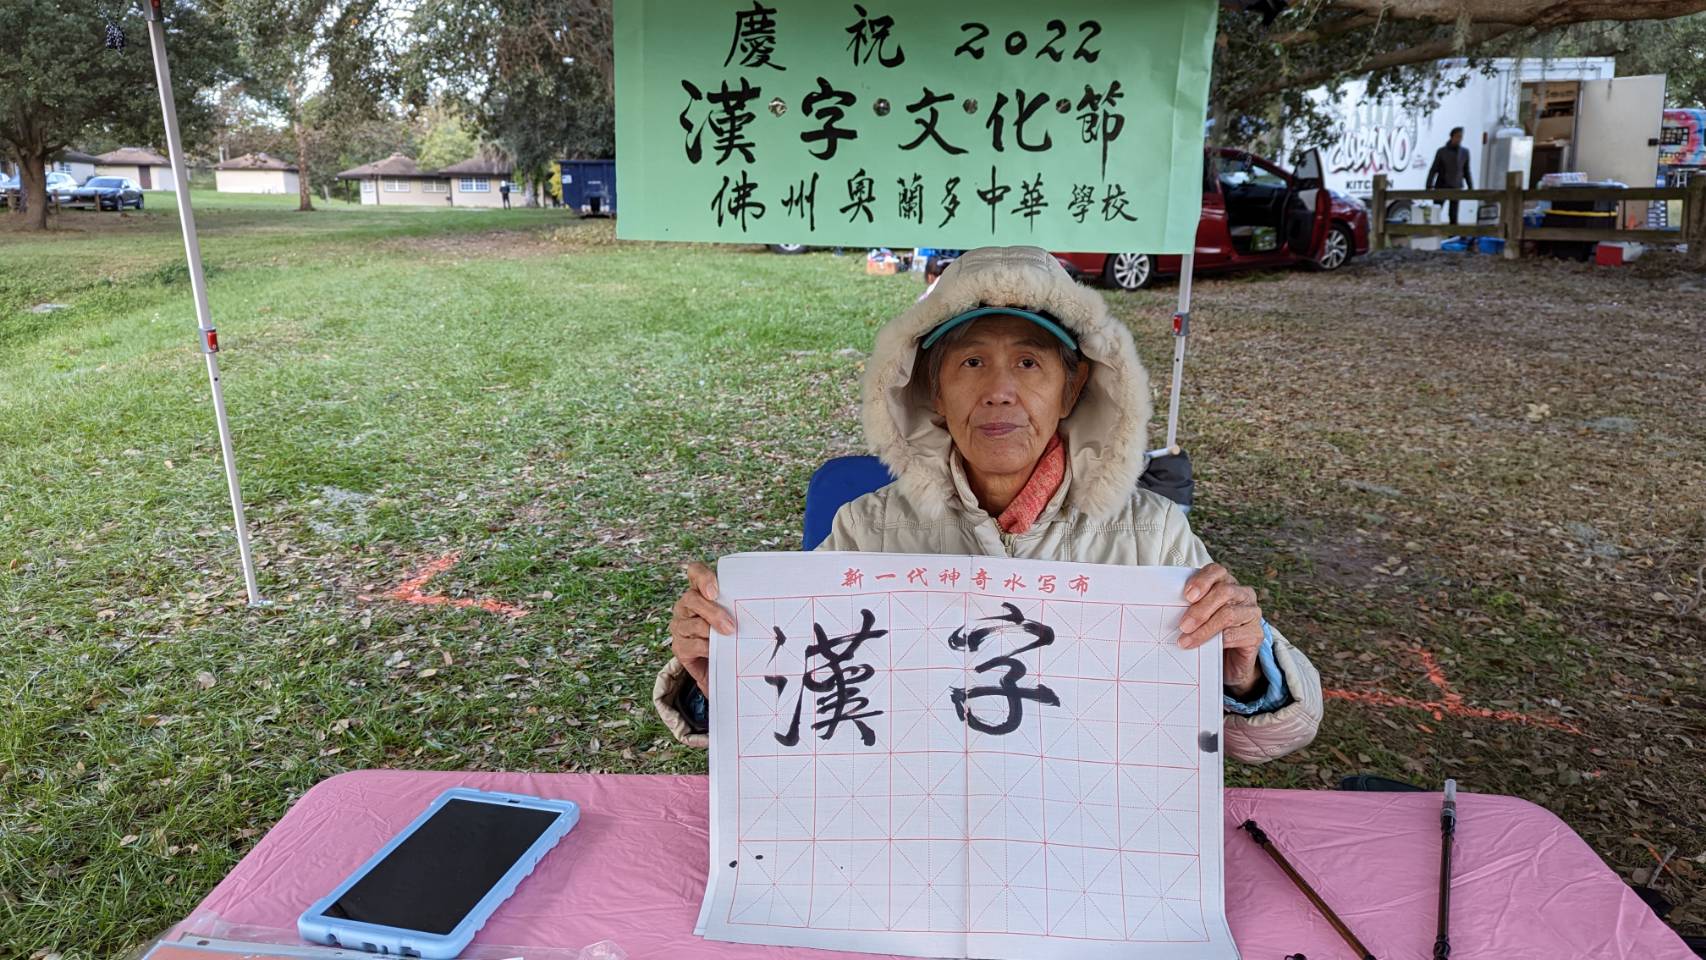 慶祝2022
漢·字·文·化·節
佛州奧蘭多中華學校
CUBANO
KITCHEN
新一代神奇水写布
漢字